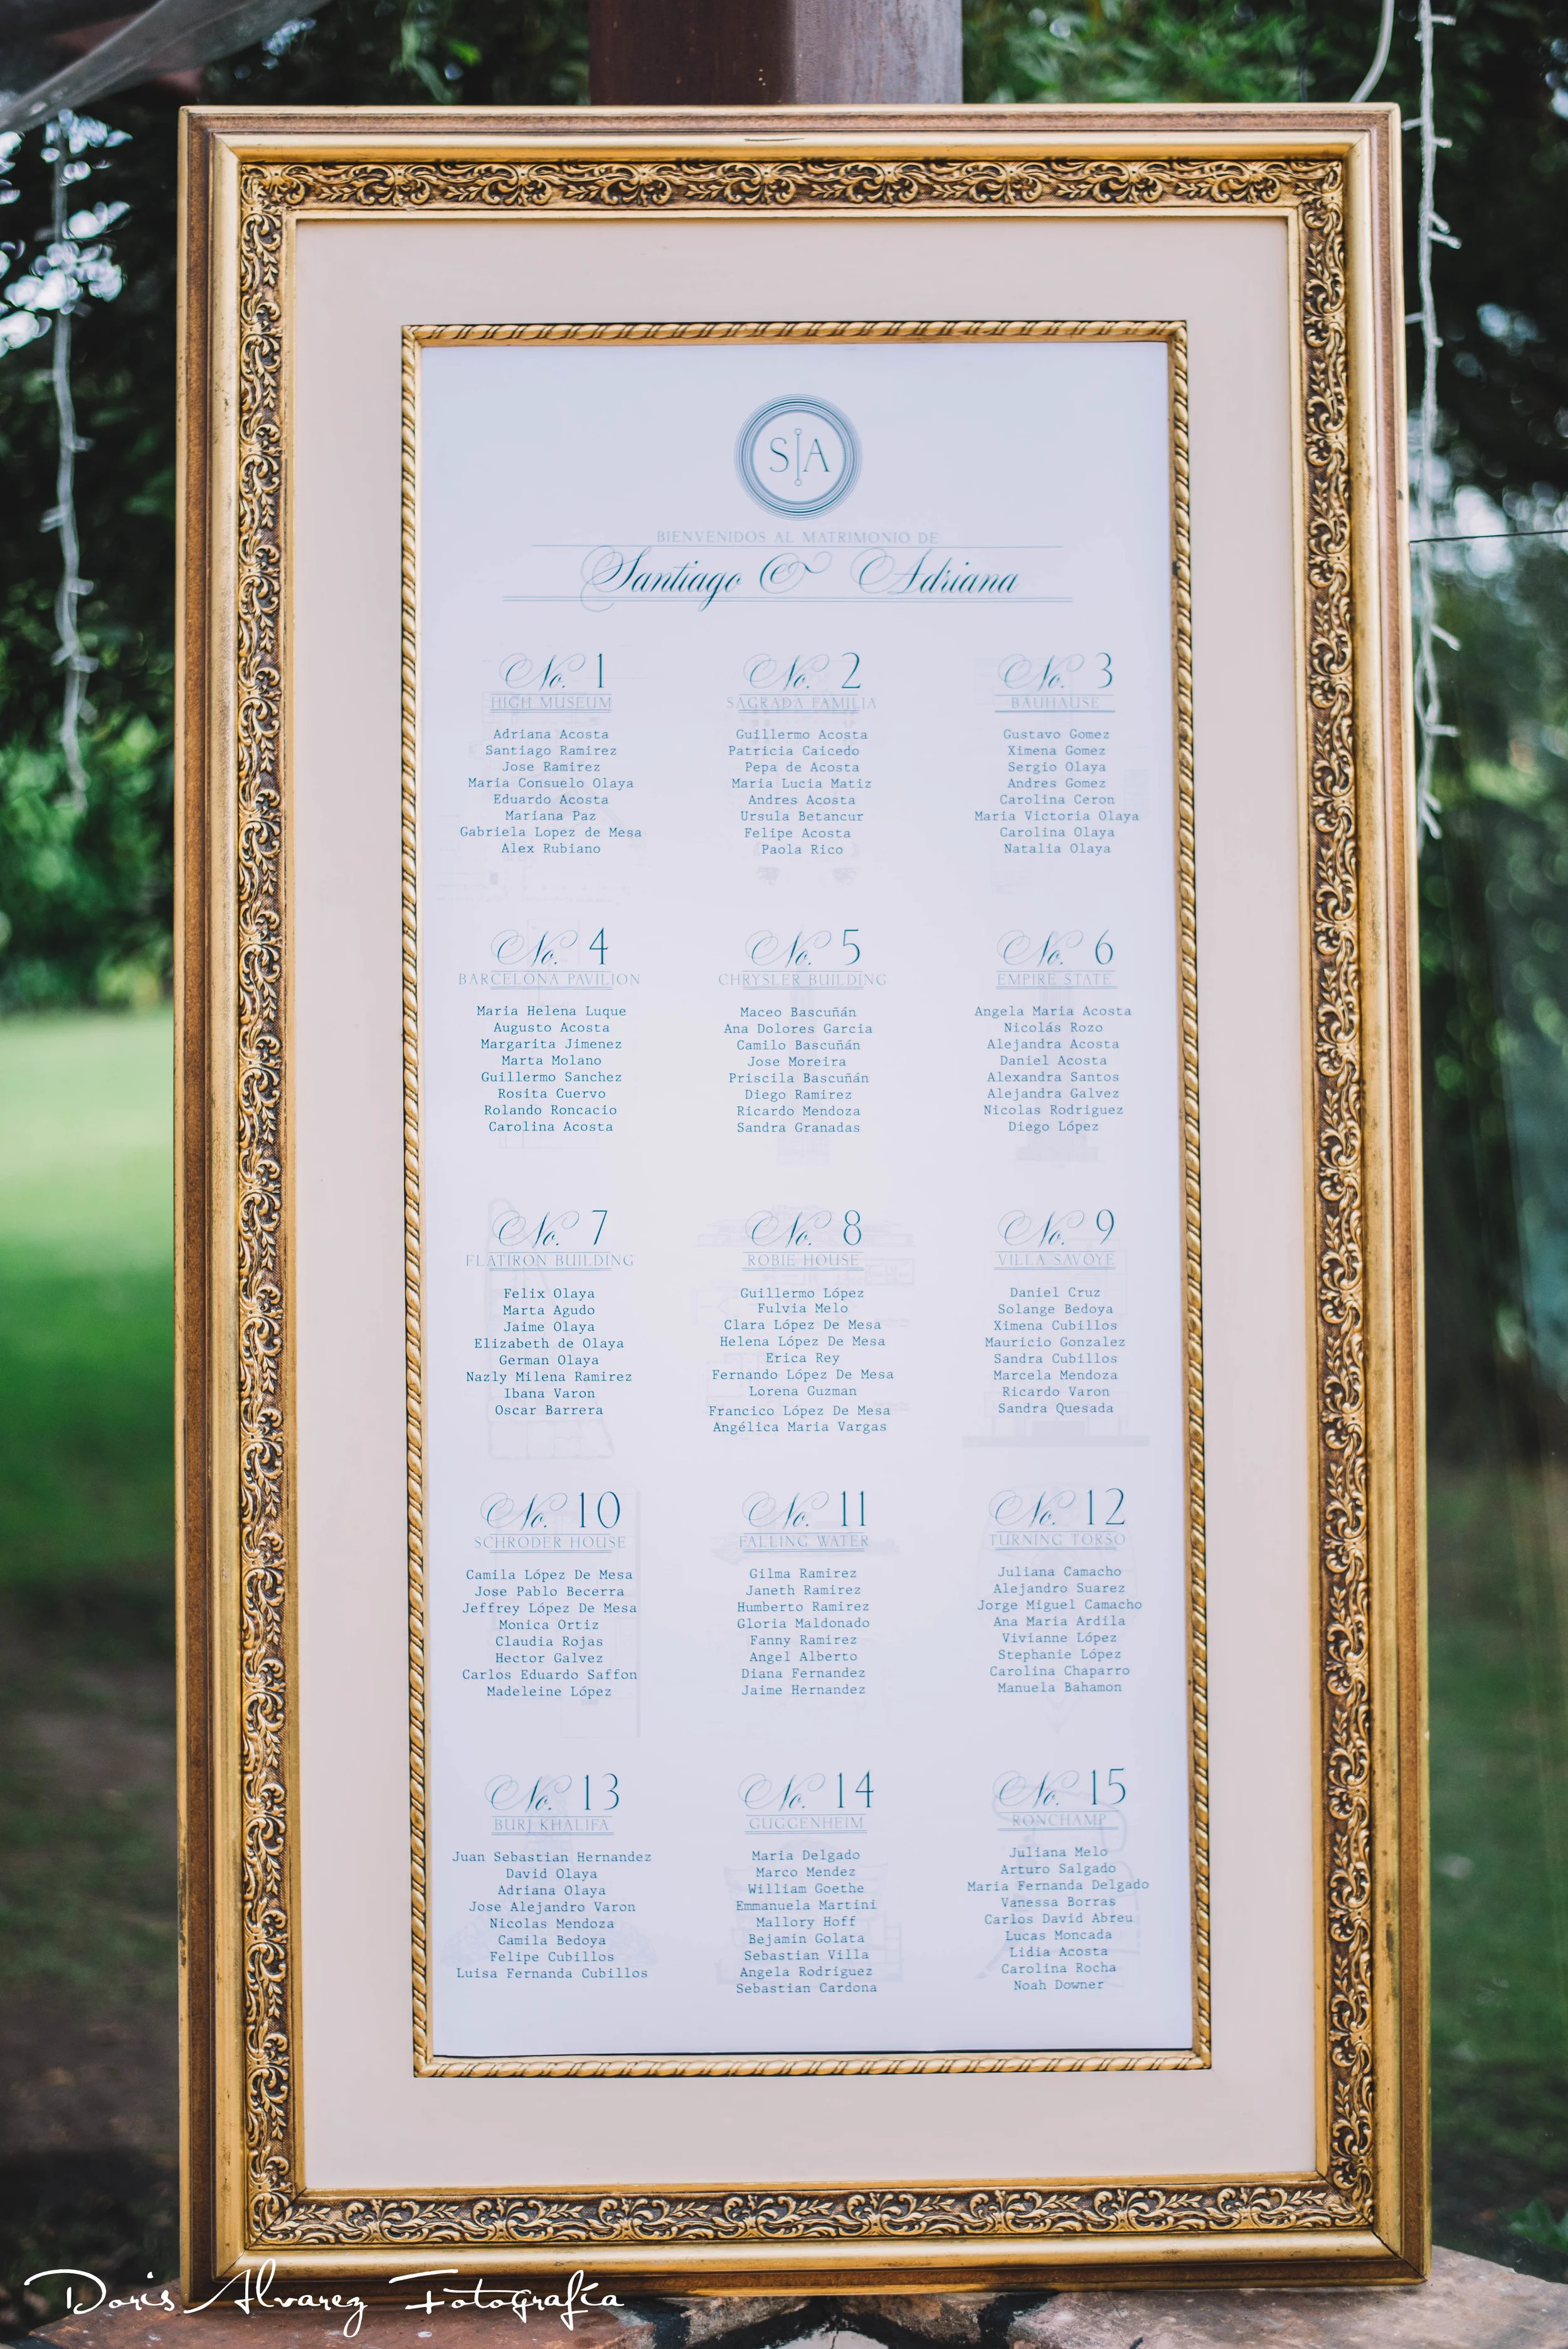 S|A
BIENVENIDOS AL MATRIMONIO DE
Santiago & Adriana
No. 1
HIGH MUSEUM
Adriana Acosta
Santiago Ramirez
Jose Ramirez
Maria Consuelo Olaya
Eduardo Acosta
Mariana Paz
Gabriela Lopez de Mesa
Alex Rubiano
No. 2
SAGRADA FAMILIA
Guillermo Acosta
Patricia Caicedo
Pepa de Acosta
Maria Lucia Matiz
Andres Acosta
Ursula Betancur
Felipe Acosta
Paola Rico
No. 3
BAUHAUSE
Gustavo Gomez
Ximena Gomez
Sergio Olaya
Andres Gomez
Carolina Ceron
Maria Victoria Olaya
Carolina Olaya
Natalia Olaya
No. 4
BARCELONA PAVILION
Maria Helena Luque
Augusto Acosta
Margarita Jimenez
Marta Molano
Guillermo Sanchez
Rosita Cuervo
Rolando Roncacio
Carolina Acosta
No. 5
CHRYSLER BUILDING
Maceo Bascuñán
Ana Dolores Garcia
Camilo Bascuñán
Jose Moreira
Priscila Bascuñán
Diego Ramirez
Ricardo Mendoza
Sandra Granadas
No. 6
EMPIRE STATE
Angela Maria Acosta
Nicolás Rozo
Alejandra Acosta
Daniel Acosta
Alexandra Santos
Alejandra Galvez
Nicolas Rodriguez
Diego López
No. 7
FLATIRON BUILDING
Felix Olaya
Marta Agudo
Jaime Olaya
Elizabeth de Olaya
German Olaya
Nazly Milena Ramirez
Ibana Varon
Oscar Barrera
No. 8
ROBIE HOUSE
Guillermo López
Fulvia Melo
Clara López De Mesa
Helena López De Mesa
Erica Rey
Fernando López De Mesa
Lorena Guzman
Francico López De Mesa
Angélica Maria Vargas
No. 9
VILLA SAVOYE
Daniel Cruz
Solange Bedoya
Ximena Cubillos
Mauricio Gonzalez
Sandra Cubillos
Marcela Mendoza
Ricardo Varon
Sandra Quesada
No. 10
SCHRODER HOUSE
Camila López De Mesa
Jose Pablo Becerra
Jeffrey López De Mesa
Monica Ortiz
Claudia Rojas
Hector Galvez
Carlos Eduardo Saffon
Madeleine López
No. 11
FALLING WATER
Gilma Ramirez
Janeth Ramirez
Humberto Ramirez
Gloria Maldonado
Fanny Ramirez
Angel Alberto
Diana Fernandez
Jaime Hernandez
No. 12
TURNING TORSO
Juliana Camacho
Alejandro Suarez
Jorge Miguel Camacho
Ana Maria Ardila
Vivianne López
Stephanie López
Carolina Chaparro
Manuela Bahamon
No. 13
BURJ KHALIFA
Juan Sebastian Hernandez
David Olaya
Adriana Olaya
Jose Alejandro Varon
Nicolas Mendoza
Camila Bedoya
Felipe Cubillos
Luisa Fernanda Cubillos
No. 14
GUGGENHEIM
Maria Delgado
Marco Mendez
William Goethe
Emmanuela Martini
Mallory Hoff
Bejamin Golata
Sebastian Villa
Angela Rodriguez
Sebastian Cardona
No. 15
RONCHAMP
Juliana Melo
Arturo Salgado
Maria Fernanda Delgado
Vanessa Borras
Carlos David Abreu
Lucas Moncada
Lidia Acosta
Carolina Rocha
Noah Downer
Doris Alvarez Fotografía